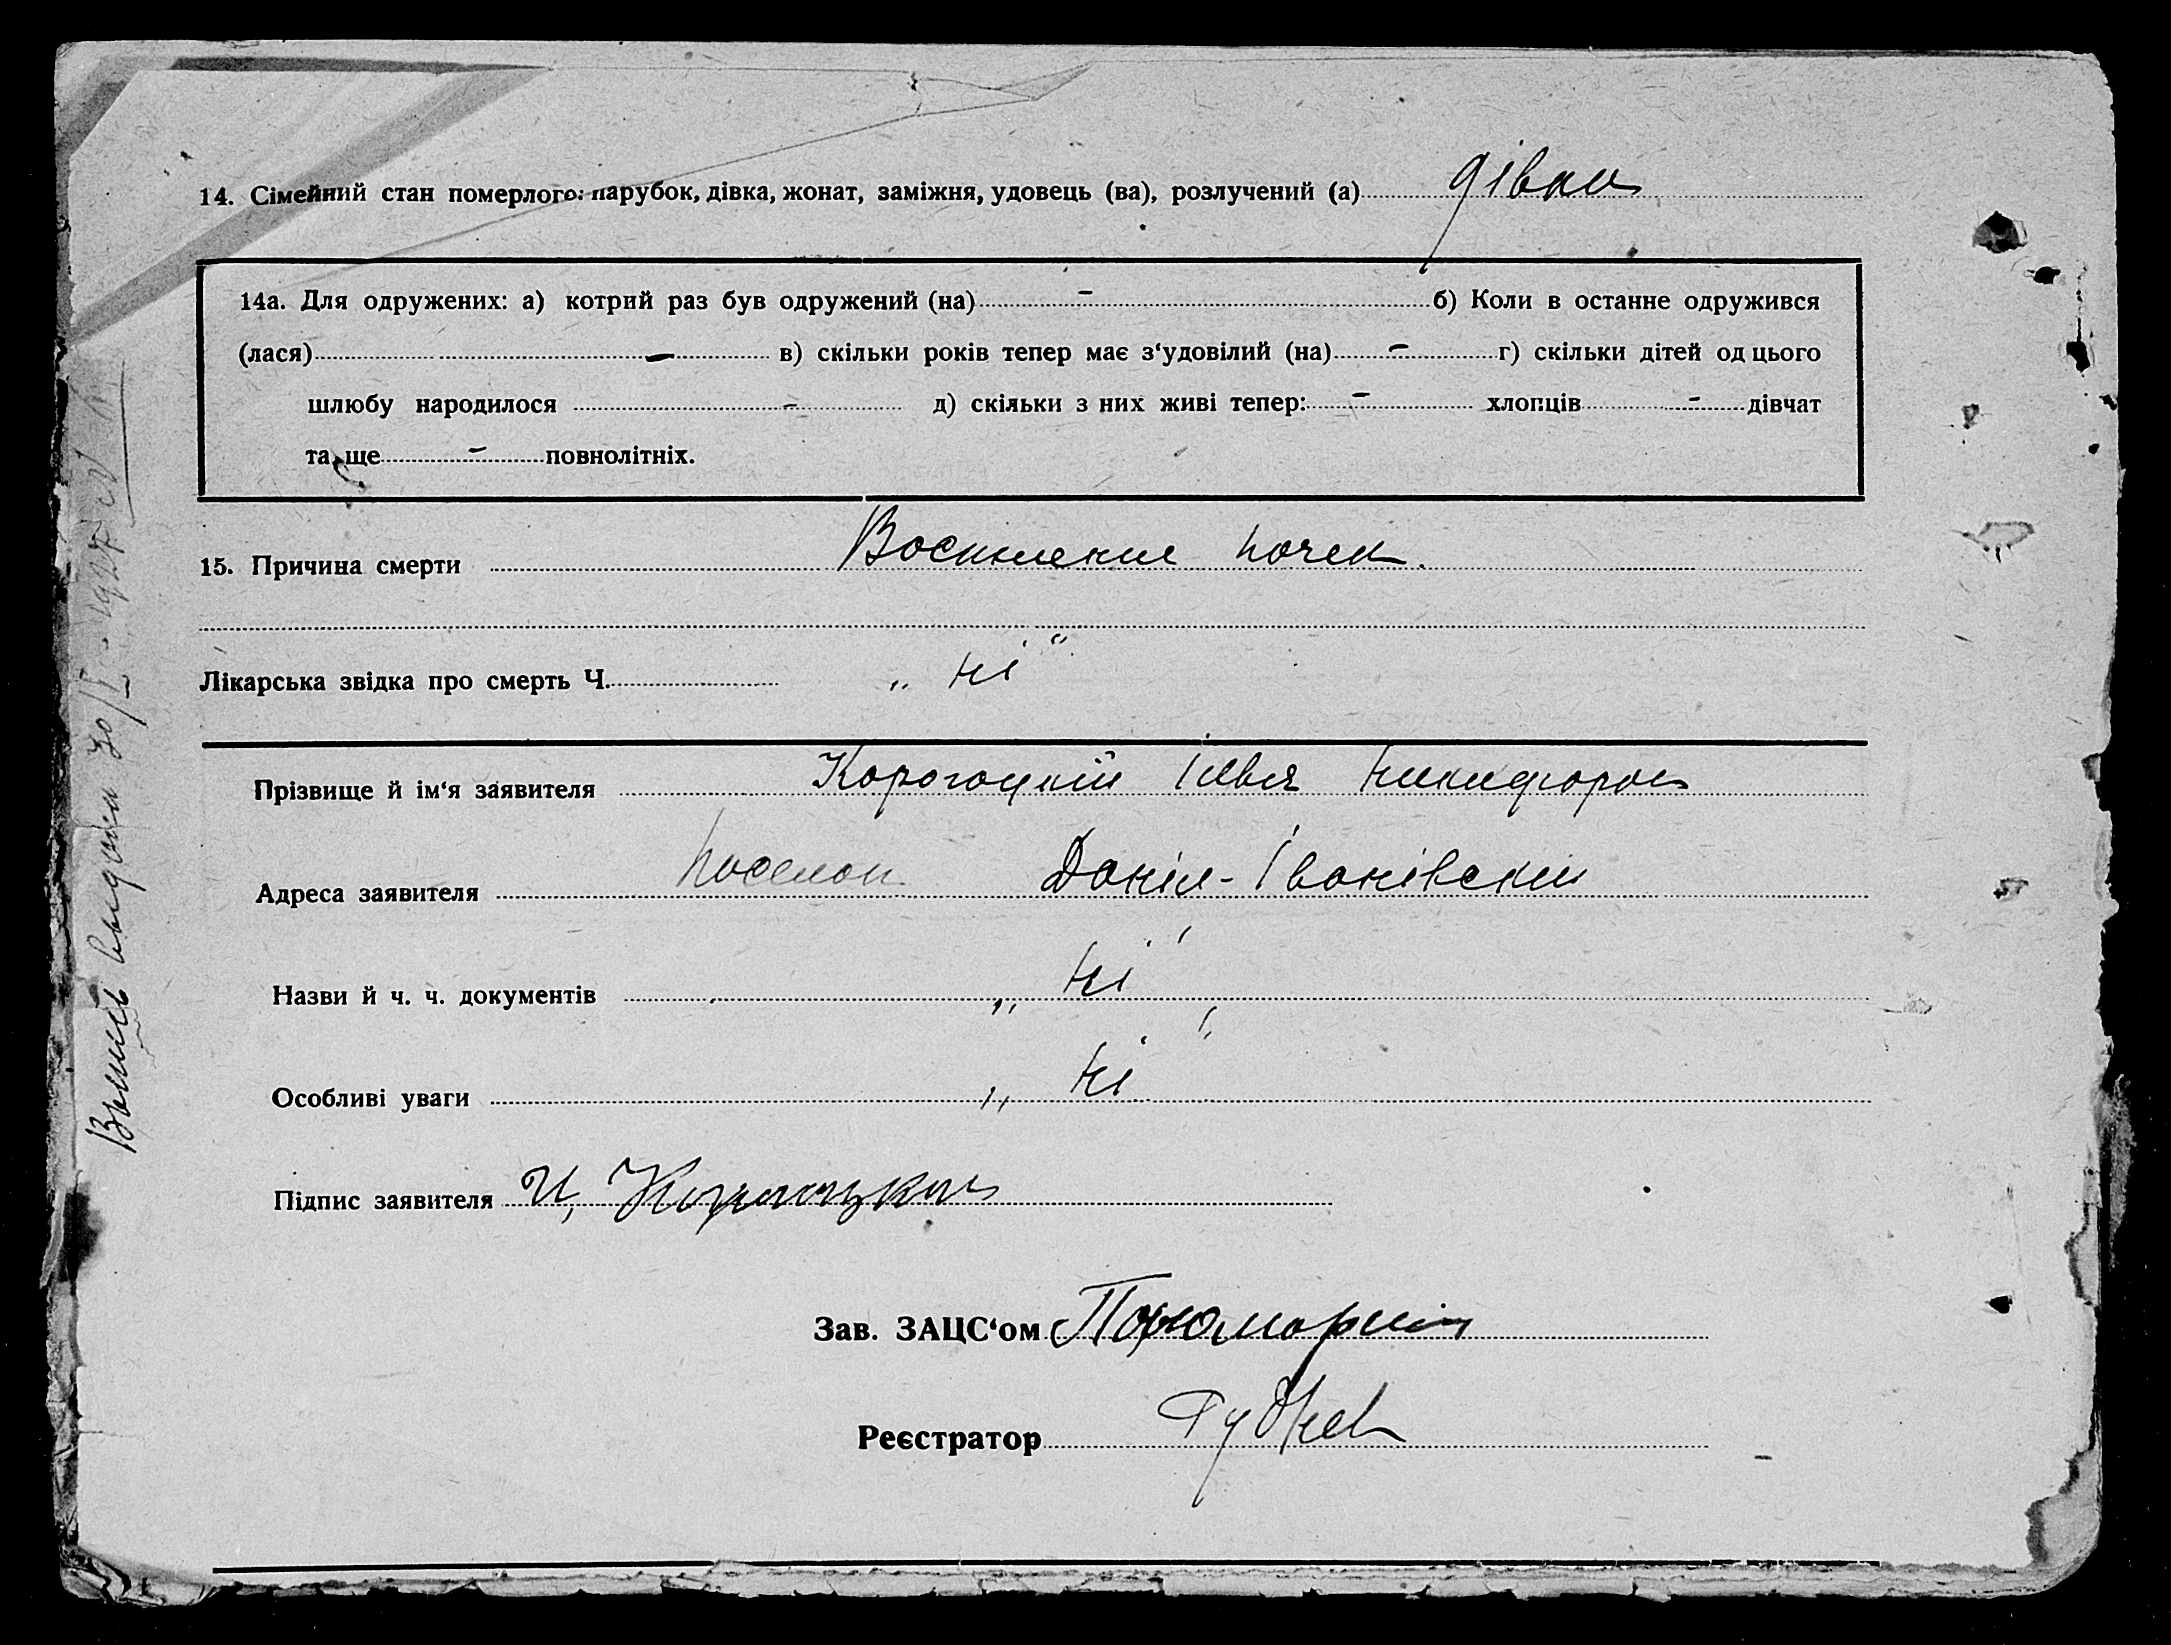 14. Сімейний стан померлого: парубок, дівка, жонат, заміжня, удовець (ва), розлучений (а) дівка
14а. Для одружених: а) котрий раз був одружений (на) - б) Коли в останне одружився
(лася) - в) скільки років тепер має з‘удовілий (на) - г) скільки дітей од цього
шлюбу народилося - д) скільки з них живі тепер: - хлопців - дівчат
та ще - повнолітніх.
15. Причина смерти Воспаление почек.
Лікарська звідка про смерть Ч. „ ні “
Прізвище й ім‘я заявителя Корогоцкій Ілья Никифоров
Адреса заявителя Поселок Даніл-Іванівский
Назви й ч. ч. документів „ ні “
Особливі уваги „ ні “
Підпис заявителя И, Корогоцкий
Зав. ЗАЦС‘ом
Реєстратор
Выпись выдана 30/V - 1927